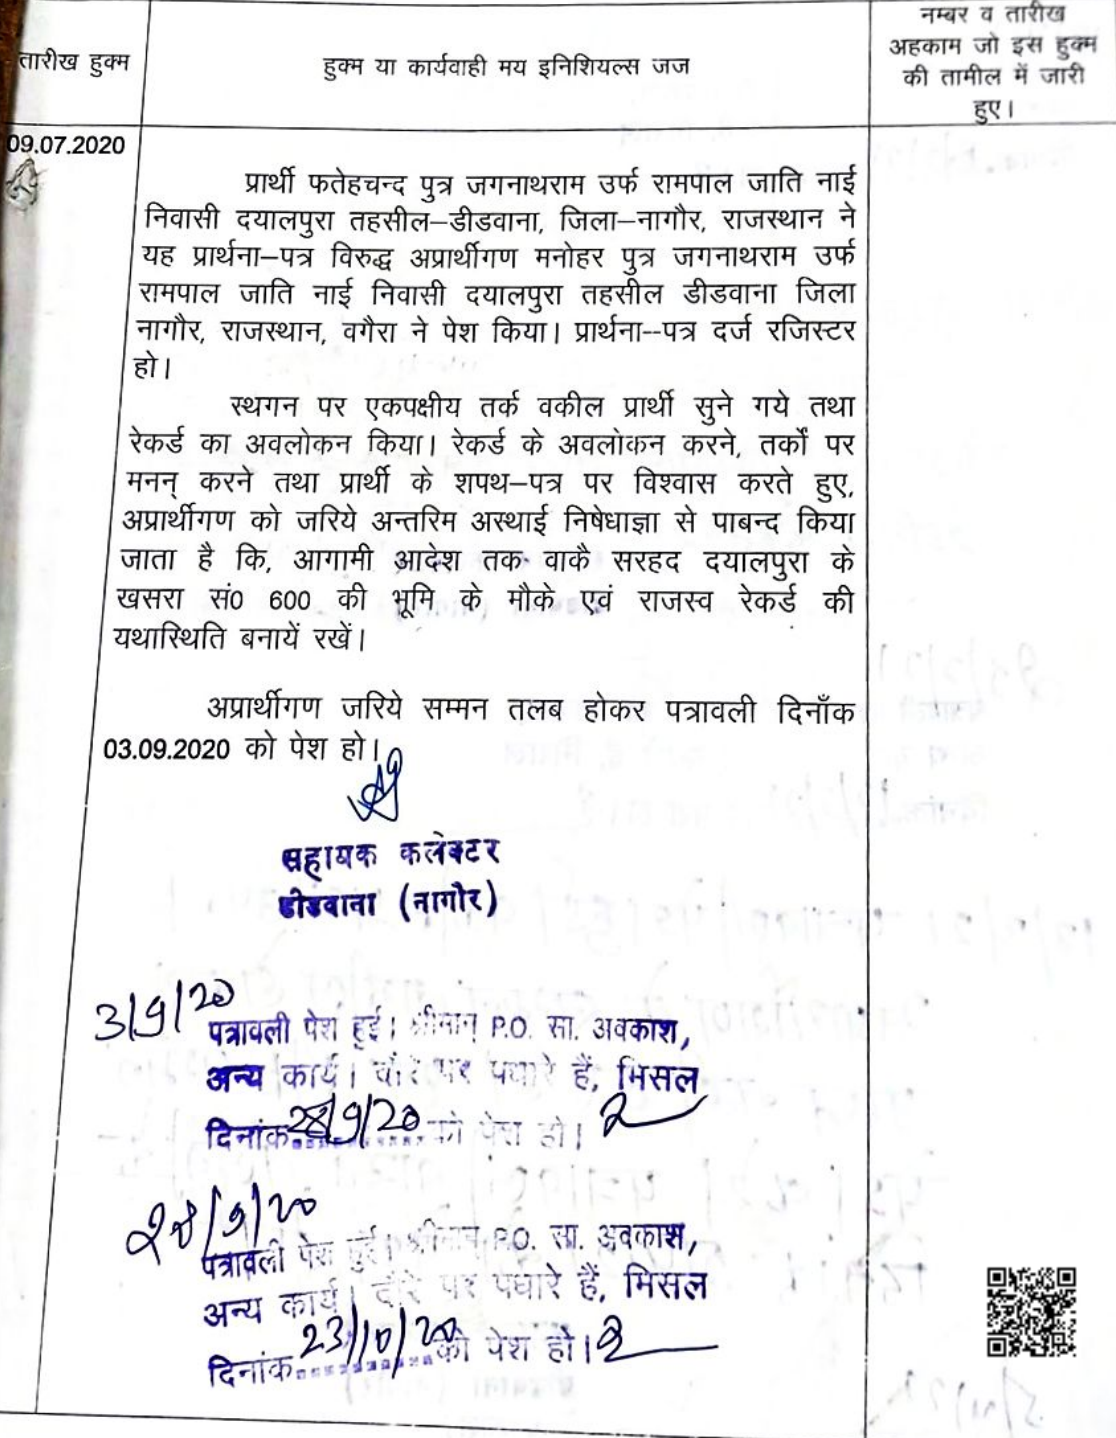 तारीख हुक्म
हुक्म या कार्यवाही मय इनिशियल्स जज
नम्बर व तारीख
अहकाम जो इस हुक्म
की तामील में जारी
हुए।
09.07.2020
प्रार्थी फतेहचन्द पुत्र जगनाथराम उर्फ रामपाल जाति नाई
निवासी दयालपुरा तहसील–डीडवाना, जिला–नागौर, राजस्थान ने
यह प्रार्थना–पत्र विरुद्ध अप्रार्थीगण मनोहर पुत्र जगनाथराम उर्फ
रामपाल जाति नाई निवासी दयालपुरा तहसील डीडवाना जिला
नागौर, राजस्थान, वगैरा ने पेश किया। प्रार्थना--पत्र दर्ज रजिस्टर
हो।
स्थगन पर एकपक्षीय तर्क वकील प्रार्थी सुने गये तथा
रेकर्ड का अवलोकन किया। रेकर्ड के अवलोकन करने, तर्कों पर
मनन् करने तथा प्रार्थी के शपथ–पत्र पर विश्वास करते हुए,
अप्रार्थीगण को जरिये अन्तरिम अस्थाई निषेधाज्ञा से पाबन्द किया
जाता है कि, आगामी आदेश तक वाकै सरहद दयालपुरा के
खसरा सं0 600 की भूमि के मौके एवं राजस्व रेकर्ड की
यथास्थिति बनायें रखें।
अप्रार्थीगण जरिये सम्मन तलब होकर पत्रावली दिनाँक
03.09.2020 को पेश हो।
सहायक कलेक्टर
डीडवाना (नागौर)
3/9/20
पत्रावली पेश हुई। श्रीमान् P.O. सा. अवकाश,
अन्य कार्य। दौरे पर पधारे हैं, मिसल
दिनांक 28/9/20 को पेश हो।
28/9/20
पत्रावली पेश हुई। श्रीमान P.O. सा. अवकाश,
अन्य कार्य। दौरे पर पधारे हैं, मिसल
दिनांक 23/10/20 को पेश हो।